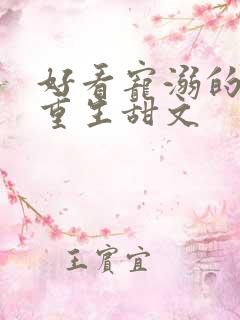 好看寵溺的
重生甜文
王賓宜